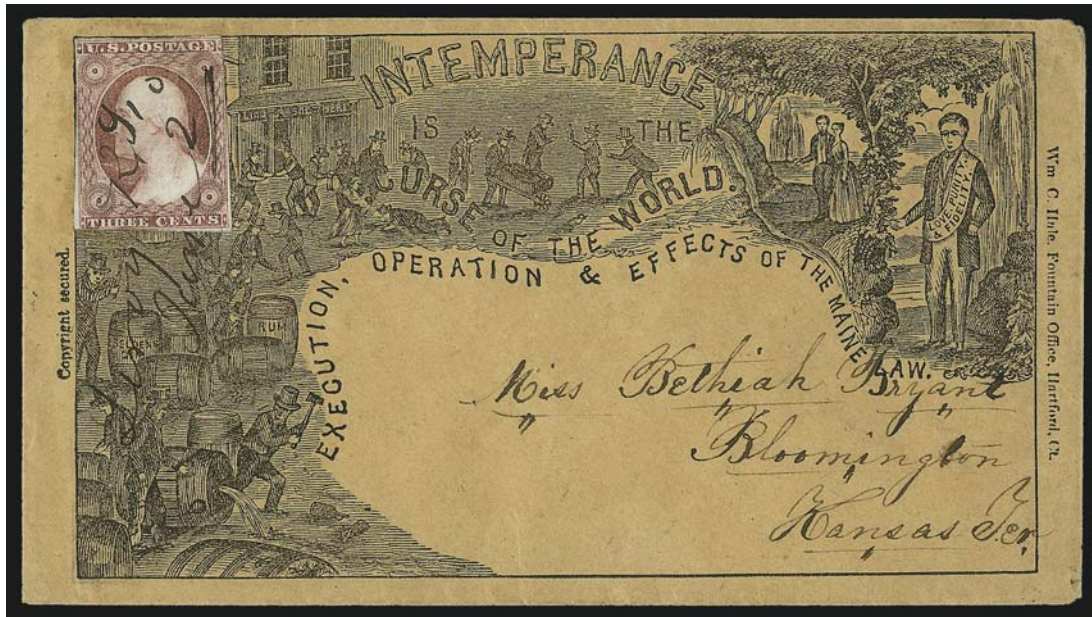 U.S. POSTAGE
THREE CENTS
INTEMPERANCE
IS THE
CURSE OF THE WORLD.
EXECUTION, OPERATION & EFFECTS OF THE MAINE LAW.
RUM
LOVE, PURITY, & FIDELITY.
Copyright secured.
Wm C. Ihle. Fountain Office, Hartford, Ct.
Miss Bethiah Bryant
Bloomington
Kansas Ter.